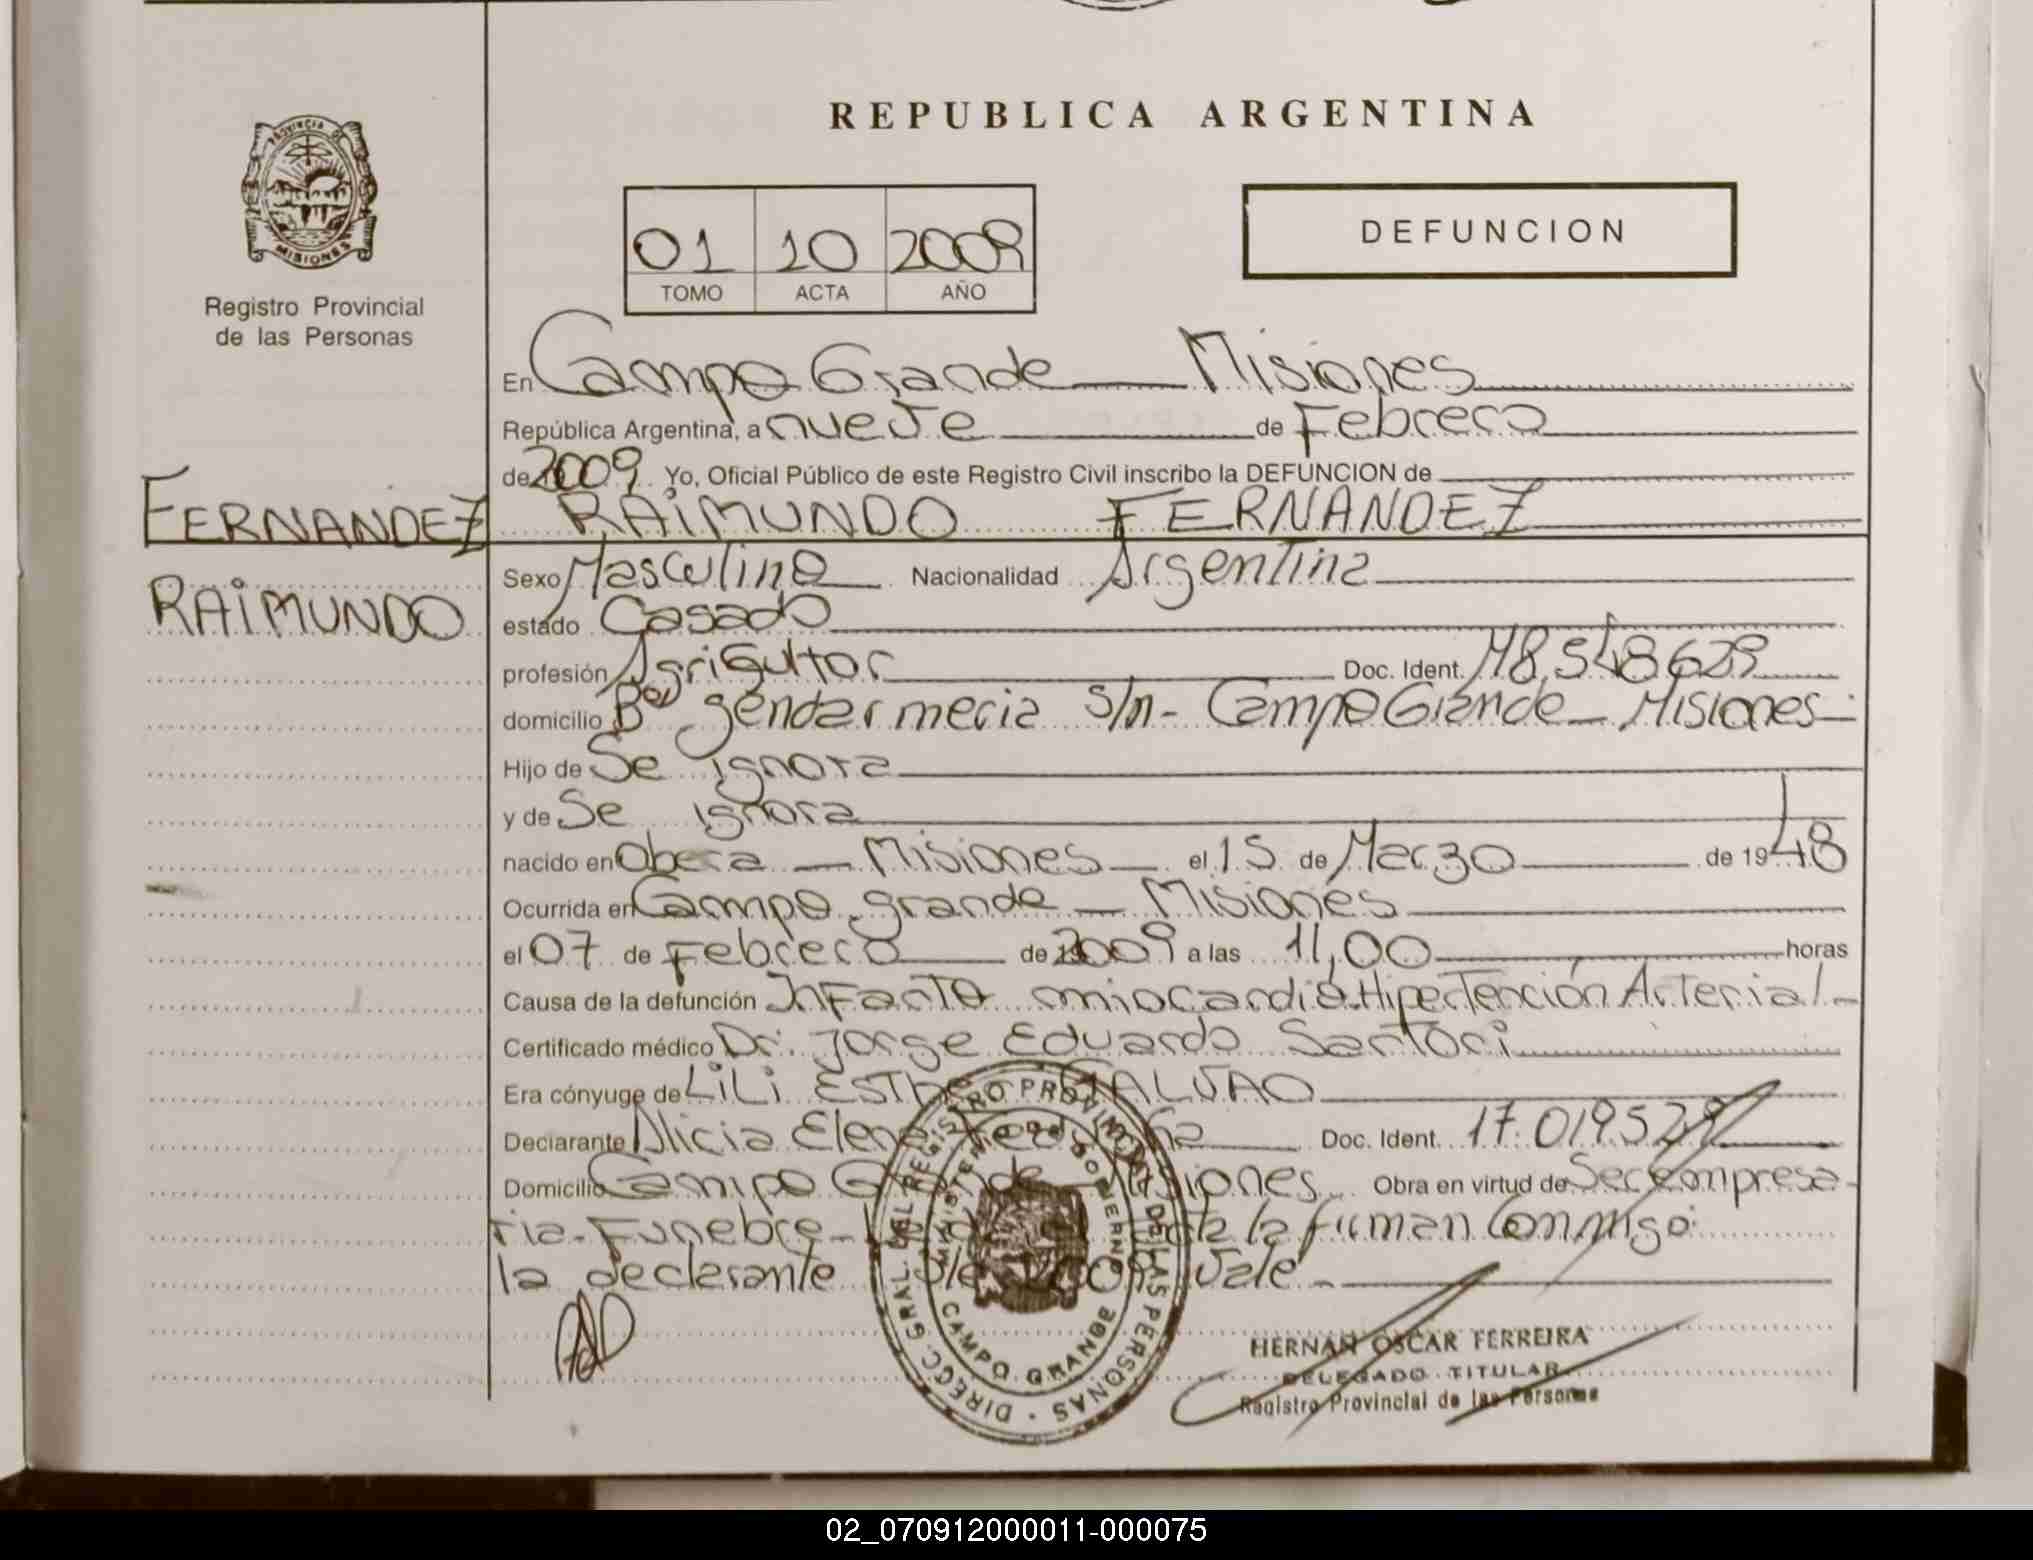 REPUBLICA ARGENTINA
PROVINCIA DE
MISIONES
Registro Provincial
de las Personas
01 10 2009
TOMO ACTA AÑO
DEFUNCION
En Campo Grande Misiones
República Argentina, a nueve de Febrero
de 2009 Yo, Oficial Público de este Registro Civil inscribo la DEFUNCION de
FERNANDEZ RAIMUNDO FERNANDEZ
RAIMUNDO
Sexo Masculino Nacionalidad Argentina
estado Casado
profesión Agricultor Doc. Ident. M8.548629
domicilio Bº gendarmeria s/n- Campo Grande - Misiones-
Hijo de Se ignora
y de Se ignora
nacido en Obera - Misiones - el 15 de Marzo de 1948
Ocurrida en Campo grande - Misiones
el 07 de Febrero de 2009 a las 11,00 horas
Causa de la defunción Infarto miocardio Hipertención Arterial-
Certificado médico Dr. Jorge Eduardo Sartori
Era cónyuge de LiLi ESTHER GALVAO
Declarante Alicia Elena Doc. Ident. 17.019529
Domicilio Campo Grande - Misiones Obra en virtud de Ser empresa-
ria-Funebre- la firman Conmigo
la declarante 2009 Vale-
DIREC. GRAL. DEL REGISTRO PROVINCIAL DE LAS PERSONAS
MINISTERIO DE GOBIERNO
CAMPO GRANDE
HERNAN OSCAR FERREIRA
DELEGADO TITULAR
Registro Provincial de las Personas
02_070912000011-000075